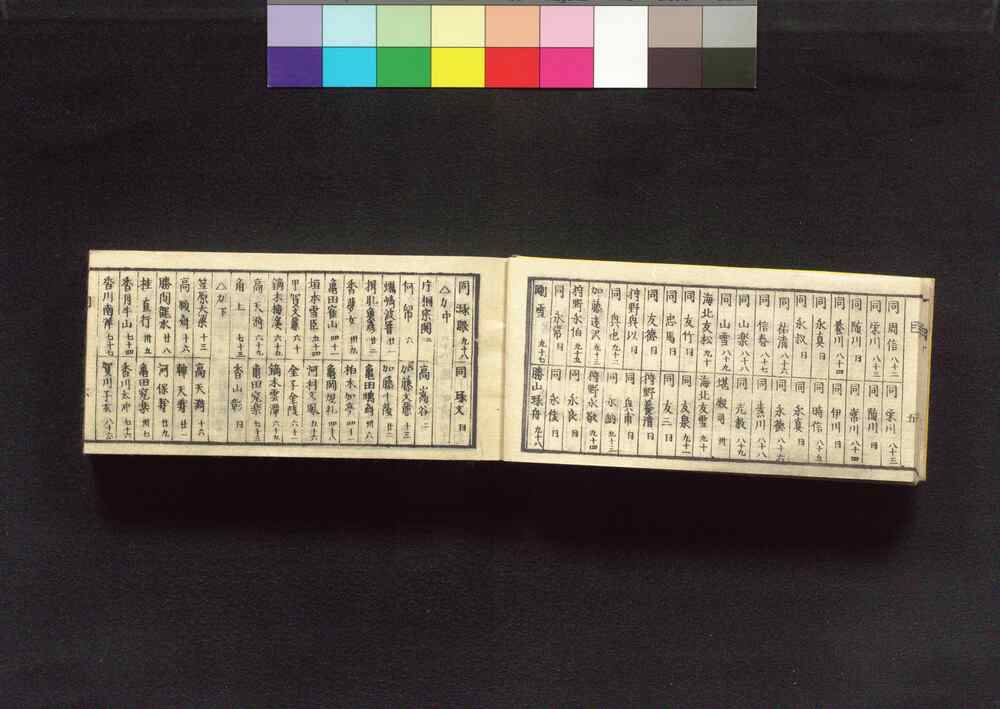 目
五
同 周信 八十二 同 栄川 八十三
同 栄川 八十三 同 随川 日
同 随川 日 同 常川 八十四
同 養川 八十四 同 伊川 日
同 永真 日 同 時信 八十五
同 永叔 日 同 永真 日
同 祐清 八十六 同 永徳 八十六
同 信春 八十七 同 素川
同 山楽 八十八 同 元教 八十九
同 山雪 八十九 司 卅
海北友松 九十 海北友雪 九十
同 友竹 日 同 友泉 九十一
同 忠馬 日 同 友三 日
同 友徳 日 狩野養清 日
狩野興以 日 同 興甫 日
同 興也 九十二 同 永納 九十三
加藤遠沢 九十三 狩野永敬 九十四
狩野永伯 九十五 同 永良 日
同 永常 日 同 永俊 日
雪 九十七 勝山琢舟 九十八
同 琢眼 九十八 同 琢文 日
△カ中
片桐宗関 二 高嵩谷 二
何 帠 六 加藤文麗 十三
廿一 加藤千蔭 廿二
廿二 亀田鵬斎 卅六
香夢女 卅九 柏木如亭 四十一
亀田窪山 四十一 亀岡規礼 四十八
垣本雪臣 五十四 河村文鳳 五十九
甲賀文麗 六十 金子金陵 六十一
鏑木梅渓 六十一 鏑木雲潭 六十七
高天漪 六十九 亀田窮楽 七十三
角上 七十三 香山彰 日
△カ下
笠原大泉 十三 高天漪 十六
高頤斎 十六 韓天寿 廿一
勝間龍水 廿八 河保寿 廿九
桂直行 卅五 亀田窮楽 卅七
香月牛山 七十四 香川太冲 七十六
香川南洋 七十七 賀川子玄 八十六